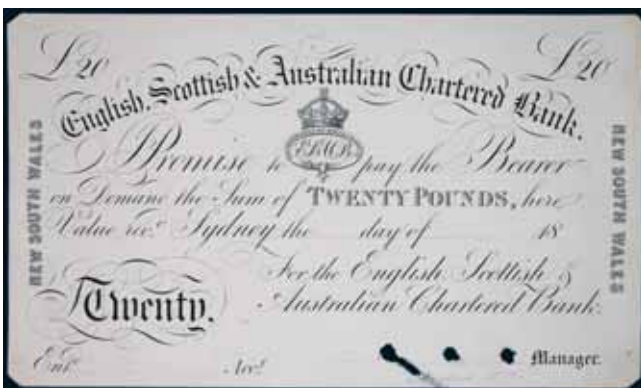 £20 £20
English, Scottish & Australian Chartered Bank.
NEW SOUTH WALES
NEW SOUTH WALES
I Promise to pay the Bearer
on Demand the Sum of TWENTY POUNDS, here
Value rec.d Sydney the day of 18
For the English Scottish &
Twenty. Australian Chartered Bank.
Ent.d Acc.t Manager.